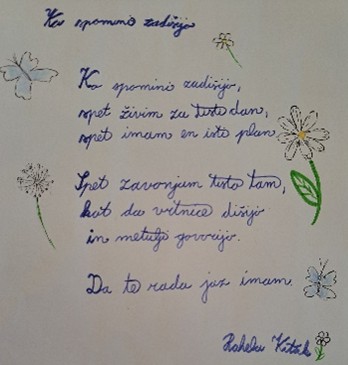 Ko spomini zadišijo
Ko spomini zadišijo,
spet živim za tiste dan,
spet imam en isti plan.
Spet zavonjam tisto tam,
kot da vrtnice dišijo
in metulji govorijo.
Da te rada jaz imam.